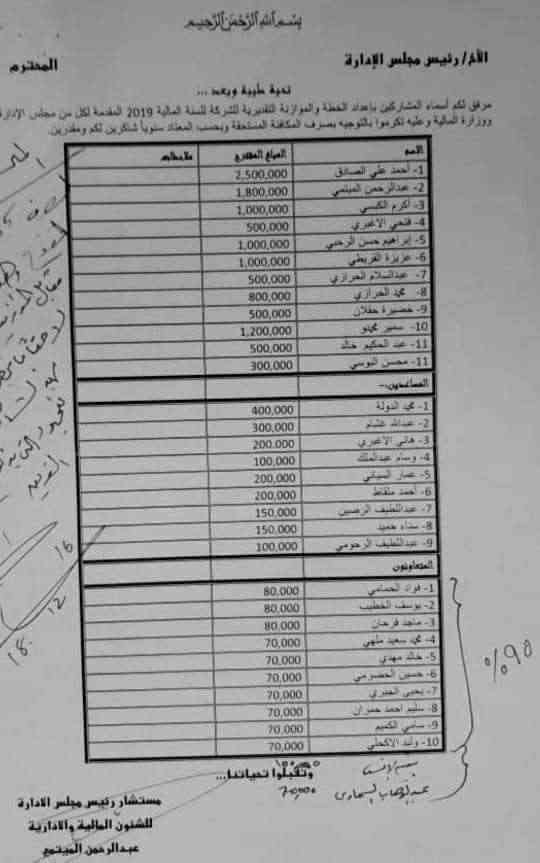 بسم الله الرحمن الرحيم
الأخ/ رئيس مجلس الإدارة المحترم
تحية طيبة وبعد ...
مرفق لكم أسماء المشاركين بإعداد الخطة والموازنة التقديرية للشركة للسنة المالية 2019 المقدمة لكل من مجلس الإدارة
ووزارة المالية وعليه تكرموا بالتوجيه بصرف المكافئة المستحقة وبحسب المعتاد سنوياً شاكرين لكم ومقدرين.
الاسم المبلغ المقترح ملاحظات
1- أحمد علي الصادق 2,500,000
2- عبدالرحمن الميتمي 1,800,000
3- أكرم الكبسي 1,000,000
4- فتحي الاغبري 500,000
5- إبراهيم حسن الرحبي 1,000,000
6- عزيزة القريطي 1,000,000
7- عبدالسلام الحرازي 500,000
8- محمد الحرازي 800,000
9- خضيرة حفلان 500,000
10- سمير مجيدو 1,200,000
11- عبد الحكيم خالد 500,000
11- محسن البوسي 300,000
المساعدين:-
1- محمد الدولة 400,000
2- عبدالله غشام 300,000
3- هاني الاغبري 200,000
4- وسام عبدالملك 100,000
5- عمار السياني 200,000
6- أحمد ملقاط 200,000
7- عبداللطيف الرصين 150,000
8- سناء حميد 150,000
9- عبداللطيف الرحومي 100,000
المتعاونون
1- فواد الحمامي 80,000
2- يوسف الخطيب 80,000
3- ماجد فرحان 80,000
4- محمد سعيد ملهي 70,000
5- خالد مهدي 70,000
6- حسين الحضرمي 70,000
7- يحيى الخبري 70,000
8- سليم احمد حمران 70,000
9- سامي الكميم 70,000
10- وليد الاكحلي 70,000
%90
وتقبلوا تحياتنا...
70,000
مستشار رئيس مجلس الادارة
للشئون المالية والادارية
عبدالرحمن الميتمي
16
12
18